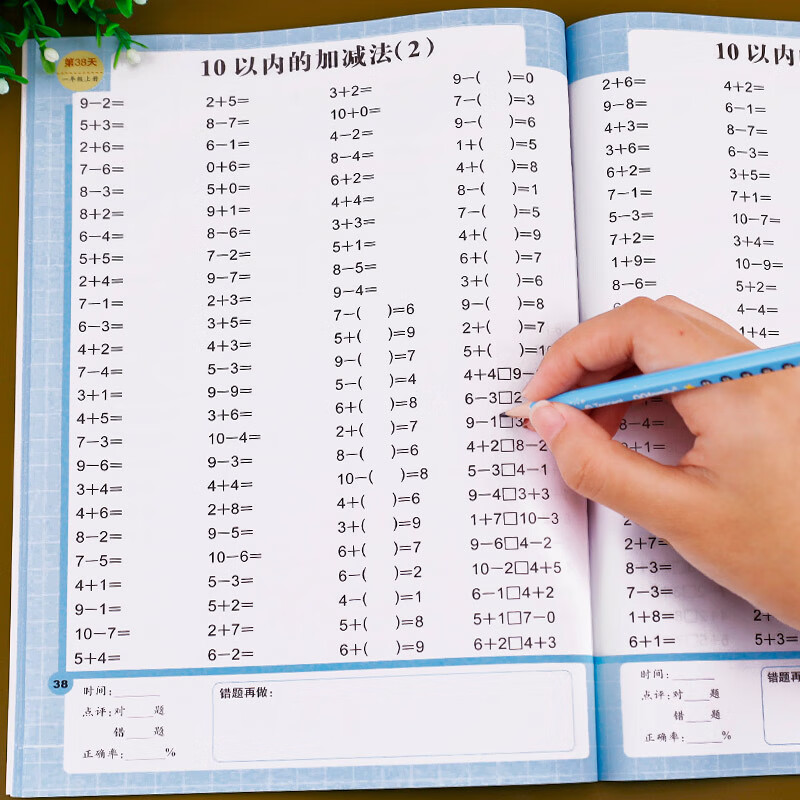 第38天
一年级上册
10以内的加减法(2)
9-2=
5+3=
2+6=
7-6=
8-3=
8+2=
6-4=
5+5=
2+4=
7-1=
6-3=
4+2=
7-4=
3+1=
4+5=
7-3=
9-6=
3+4=
4+6=
8-2=
7-5=
4+1=
9-1=
10-7=
5+4=
2+5=
8-7=
6-1=
0+6=
5+0=
9+1=
8-6=
7-2=
9-7=
2+3=
3+5=
4+3=
5-3=
9-9=
3+6=
10-4=
9-3=
4+4=
2+8=
9-5=
10-6=
5-3=
5+2=
2+7=
6-2=
3+2=
10+0=
4-2=
8-4=
6+2=
4+4=
3+3=
5+1=
8-5=
9-4=
7-( )=6
5+( )=9
9-( )=7
5-( )=4
6+( )=8
2+( )=7
8-( )=6
10-( )=8
4+( )=6
3+( )=9
6+( )=7
6-( )=2
4-( )=1
5+( )=8
6+( )=9
9-( )=0
7-( )=3
9-( )=6
1+( )=5
4+( )=8
8-( )=1
7-( )=5
4+( )=9
6+( )=7
3+( )=6
9-( )=8
2+( )=7
5+( )=10
4+4□9-
6-3□2
9-1□3
4+2□8-2
5-3□4-1
9-4□3+3
1+7□10-3
9-6□4-2
10-2□4+5
6-1□4+2
5+1□7-0
6+2□4+3
38
时间:_____
点评:对___题
错___题
正确率:_____%
错题再做:
10以内的
2+6=
9-8=
4+3=
3+6=
6+2=
7-1=
5-3=
7+2=
1+9=
8-6=
8-4=
2+7=
8-3=
7-3=
1+8=
6+1=
4+2=
6-1=
8-7=
6-3=
3+5=
7+1=
10-7=
3+4=
10-9=
5+2=
4-4=
1+4=
2+
5+3=
时间:_____
点评:对___题
错___题
正确率:_____%
错题再